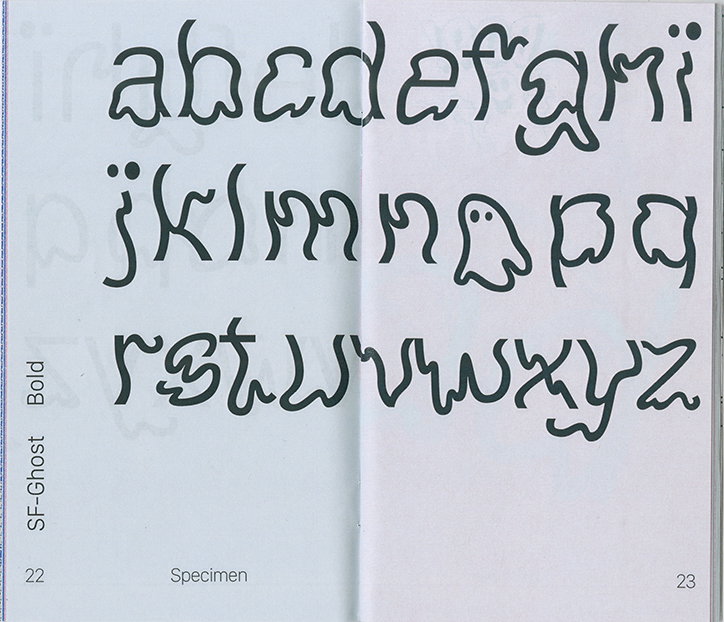 abcdefghï
j̈klmnopq
rstuvwxyz
SF-Ghost Bold
22 Specimen 23